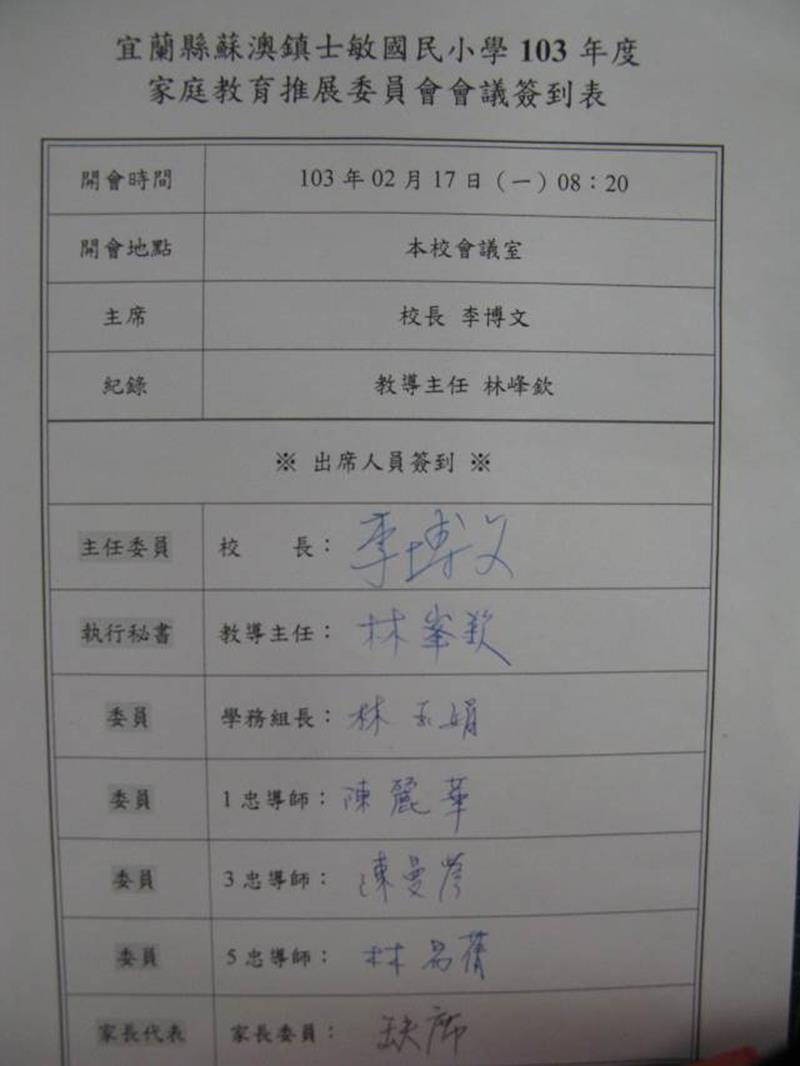 宜蘭縣蘇澳鎮士敏國民小學 103 年度
家庭教育推展委員會會議簽到表
開會時間 103 年 02 月 17 日（一）08：20
開會地點 本校會議室
主席 校長 李博文
紀錄 教導主任 林峰欽
※ 出席人員簽到 ※
主任委員 校 長： 李博文
執行秘書 教導主任： 林峯欽
委員 學務組長： 林 娟
委員 1 忠導師： 陳麗華
委員 3 忠導師： 陳曼
委員 5 忠導師： 林
家長代表 家長委員： 缺席